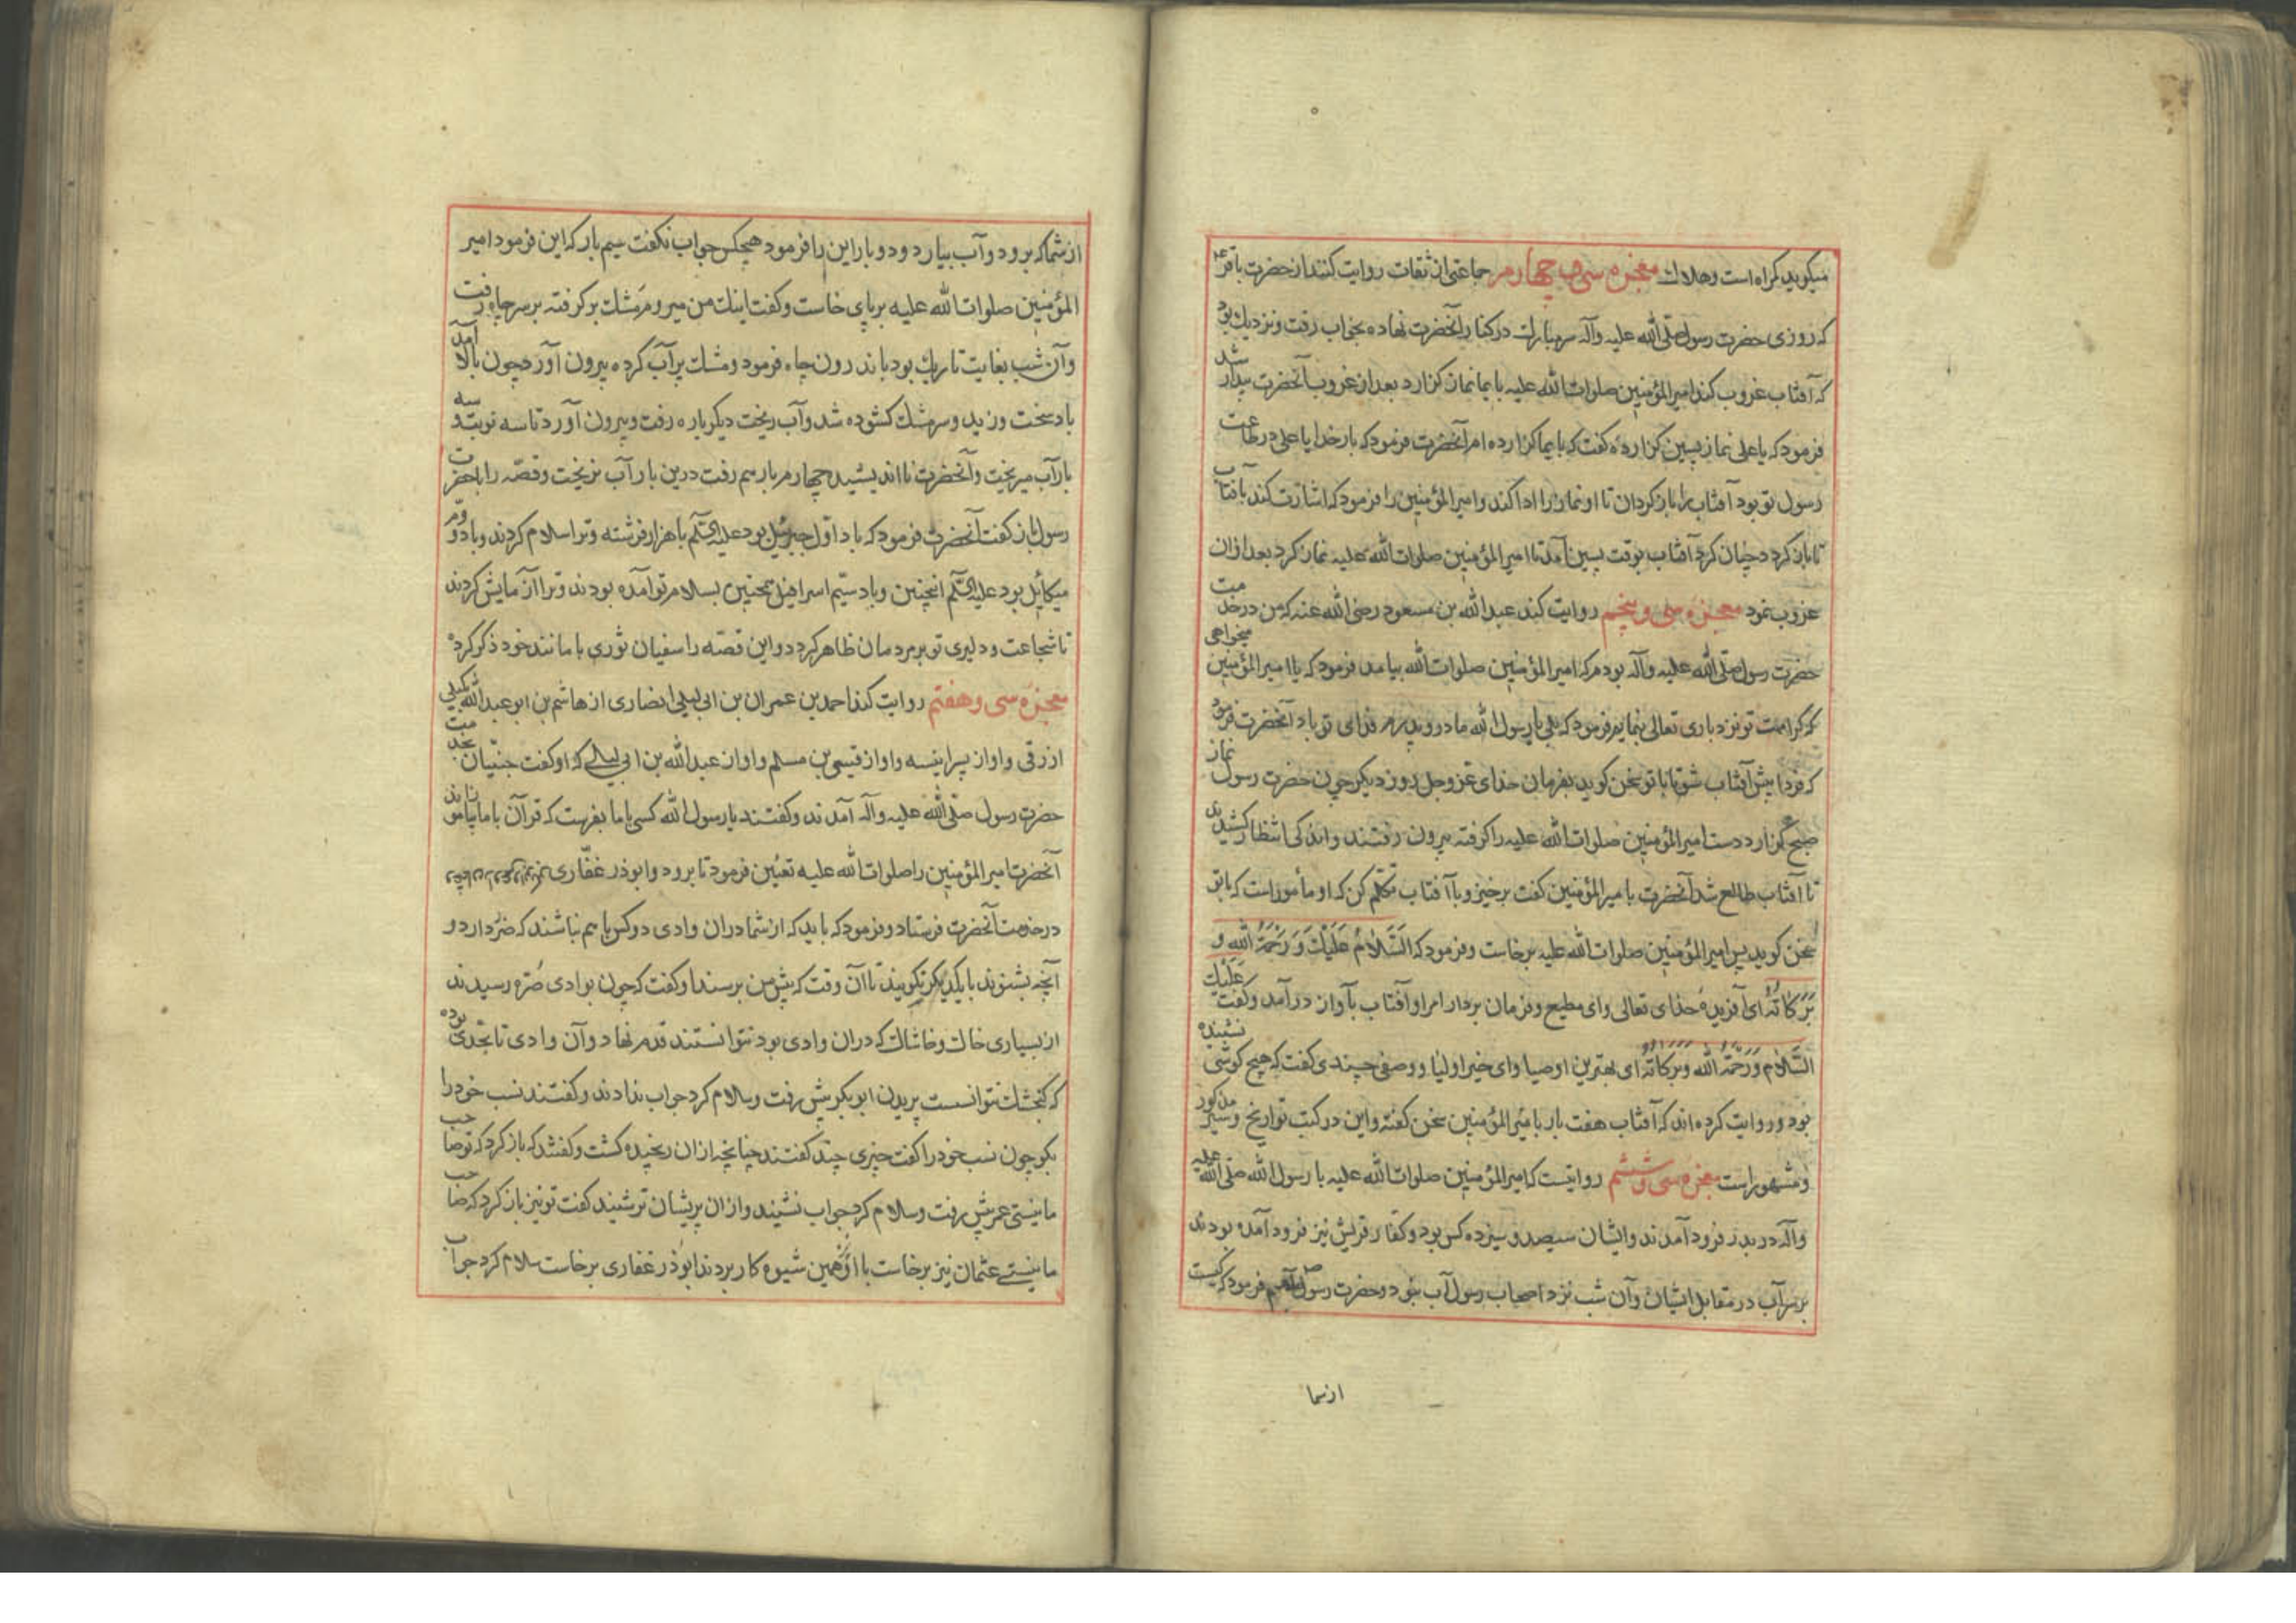 میکوید کمراه است وهلاك معجزه سی و چهارم جماعتی از ثقات روایت کنند از حضرت باقر ع
که روزی حضرت رسول صلّی الله علیه وآله سر مبارك در کنار آنحضرت نهاده بخواب رفت ونزدیك بود
که آفتاب غروب کند امیر المؤمنین صلوات الله علیه بایما نماز کزارد بعد از غروب آنحضرت بیدار شد
فرمود که یا علی نماز پسین کزارده کفت که بایما کزارده ام آنحضرت فرمود که بار خدایا علی در طاعت
رسول تو بود آفتاب را باز کردان تا او نماز را ادا کند وامیر المؤمنین را فرمود که اشارت کند بافتاب
تا باز کردد چنان کرد آفتاب بوقت پسین آمد تا امیر المؤمنین صلوات الله علیه نماز کرد بعد ازان
غروب نمود معجزه سی و پنجم روایت کند عبد الله بن مسعود رضی الله عنه که من در خدمت
حضرت رسول صلّی الله علیه وآله بودم که امیر المؤمنین صلوات الله بیامد فرمود که یا امیر المؤمنین میخواهی
که کرامت تو نزد باری تعالی بنمایم فرمود که بلی یا رسول الله مادر و پدرم فدای تو باد آنحضرت فرمود
که فردا پیش آفتاب شو تا با تو سخن کوید بفرمان خدای عزوجل روز دیکر چون حضرت رسول نماز
صبح کزارد دست امیر المؤمنین صلوات الله علیه را کرفته بیرون رفتند واندکی انتظار کشیدند
تا آفتاب طالع شد آنحضرت با میر المؤمنین کفت برخیز وبا آفتاب تکلّم کن که او مأمور است که با تو
سخن کوید پس امیر المؤمنین صلوات الله علیه برخاست وفرمود که السَّلَامُ عَلَیْكَ وَرَحْمَةُ اللهِ وَ
بَرَكَاتُهُ ای آفریدهٔ خدای تعالی وای مطیع وفرمان بردار امر او آفتاب بآواز در آمد وکفت عَلَیْكَ
السَّلَام وَرَحْمَةُ الله وبركاتُهُ ای بهترین اوصیا وای خیر اولیا ووصفی چندی کفت که هیچ کوشی نشنیده
بود وروایت کرده اند که آفتاب هفت بار با میر المؤمنین سخن کفته واین در کتب تواریخ وسیر مذکور
ومشهور است معجزه سی و ششم روایتست که امیر المؤمنین صلوات الله علیه با رسول الله صلّی الله علیه
وآله در بدر فرود آمدند وایشان سیصد وسیزده کس بود وکفار قریش نیز فرود آمده بودند
بر سر آب در مقابل ایشان وآن شب نزد اصحاب رسول آب نبود وحضرت رسول فرمود که کیست
از شما
از شما که برود وآب بیارد ودوبار این را فرمود هیچکس جواب نکفت سیم بار که این فرمود امیر
المؤمنین صلوات الله علیه بر پای خاست وکفت اینك من میروم مشك بر کرفته بر سر چاه رفت
وآن شب بغایت تاریك بود باندرون چاه فرمود ومشك پر آب کرده بیرون آورد چون بالا آمد
باد سخت وزید وسر مشك کشوده شد وآب ریخت دیکر باره رفت وبیرون آورد تا سه نوبت و سه
بار آب میریخت وآنحضرت نااندیشید چهارم بار هم رفت درین بار آب نریخت وقصّه را بحضرت
رسول باز کفت آنحضرت فرمود که باد اوّل جبرئیل بود علیه السّلم با هزار فرشته وترا سلام کردند وباد دوّم
میکائیل بود علیه السّلم انچنین وباد سیّم اسرافیل همچنین بسلام تو آمده بودند وترا آزمایش کردند
تا شجاعت ودلیری تو بر مردمان ظاهر کردد واین قصّه را سفیان ثوری با مانند خود ذکر کرده
معجزه سی وهفتم روایت کند احمد بن عمران بن ابی لیلی انصاری از هاشم بن ابو عبد الله
ازرقی واو از واو از قیس بن مسلم واو از عبد الله بن ابی لیالے که او کفت جنّیان بخدمت
حضرت رسول صلّی الله علیه وآله آمدند وکفتند یا رسول الله کسی با ما بفرست که قرآن با ما بیاموزاند
آنحضرت امیر المؤمنین را صلوات الله علیه تعیّن فرمود تا برود وابوذر غفّاری
در خدمت آنحضرت فرستاد وفرمود که باید که از شما دران وادی دو کس با هم نباشند که ضرّ دارد و
آنچه بشنوند با یکدیکر نکویند تا آن وقت که پیش من برسند او کفت که چون بوادی رسیدند
از بسیاری خاك وخاشاك که دران وادی بود نتوانستند قدم نهاد وآن وادی تا بحدّی بوده
که کنجشك نتوانست پریدن ابوبکر پیش رفت وسلام کرد جواب ندادند وکفتند نسب خود را
بکو چون نسب خود را کفت چیزی چند کفتند چنانچه ازان رنجیده کشت وکفتند که باز کرد که تو صاحب
ما نیستی عمر پیش رفت وسلام کرد جواب نشنید وازان پریشان تر شنید کفت تو نیز باز کرد که صاحب
ما نیستے عثمان نیز برخاست با او همین شیوه کار بردند ابوذر غفاری برخاست سلام کرد جواب